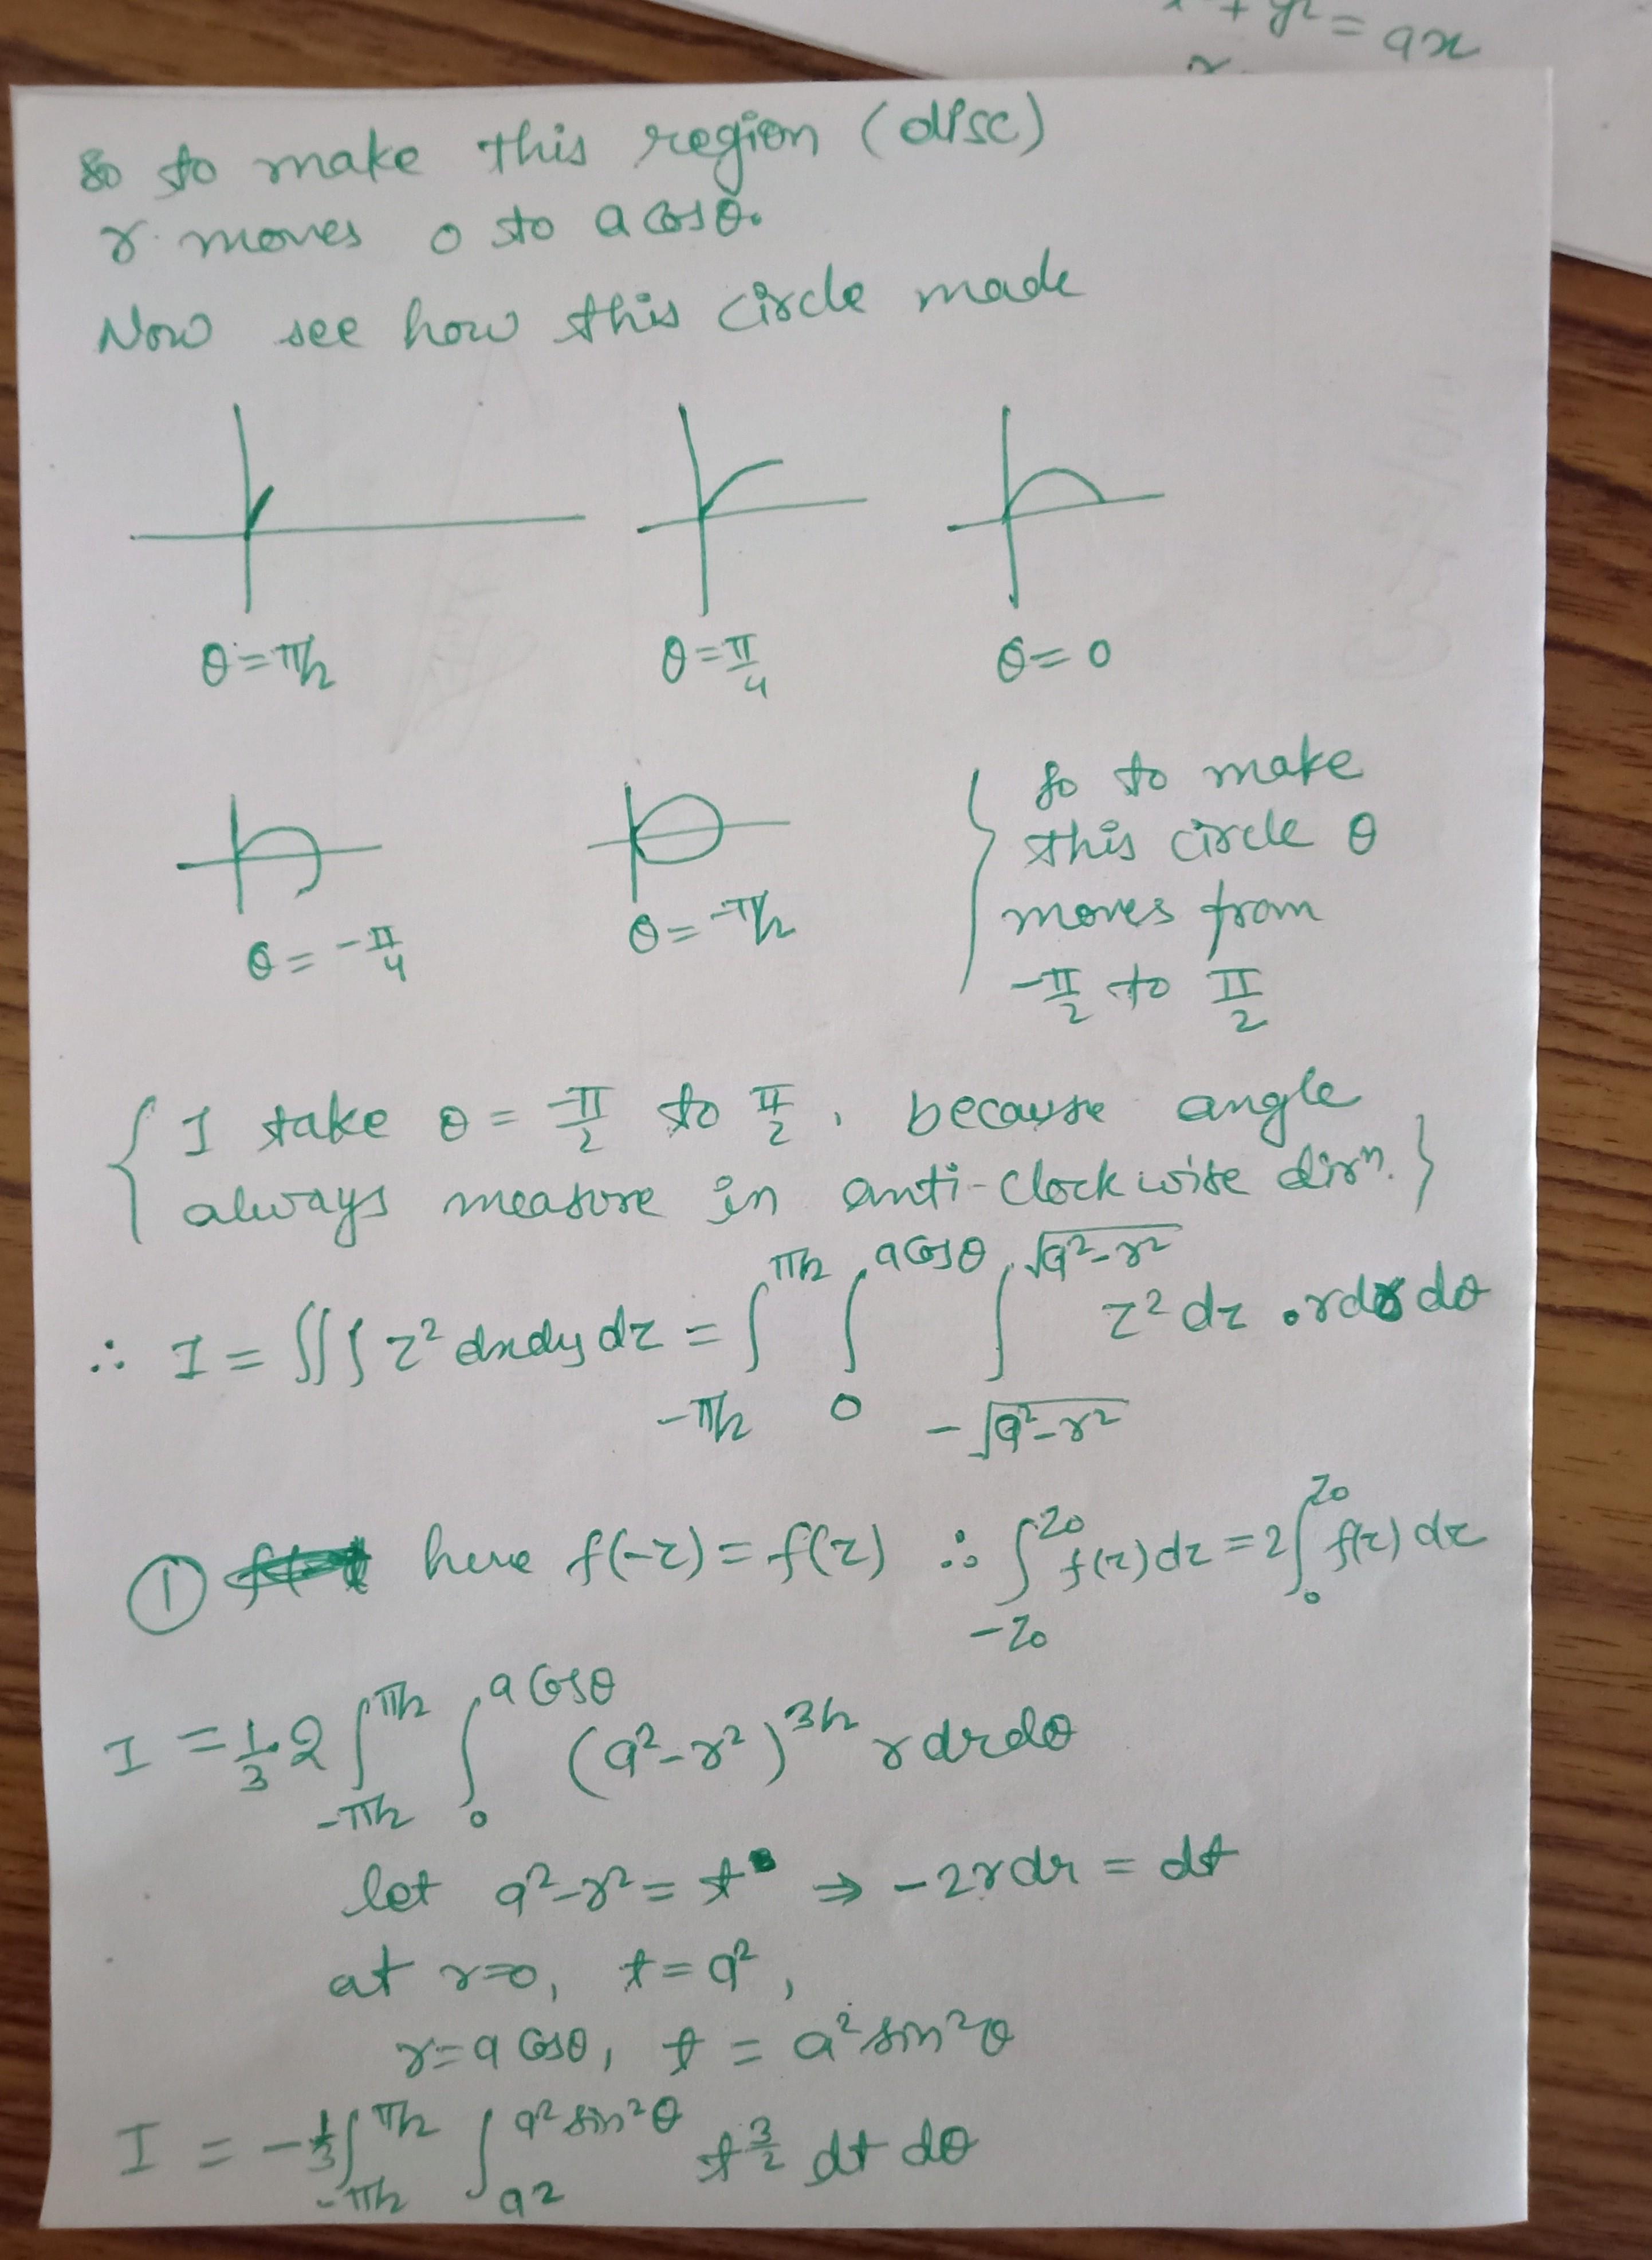 x² + y² = ax
So to make this region (disc)
r moves 0 to a cosθ.
Now see how this circle made
θ = π/2
θ = π/4
θ = 0
θ = -π/4
θ = -π/2
So to make
this circle θ
moves from
-π/2 to π/2
{ I take θ = -π/2 to π/2, because angle
always measure in anti-clockwise dirⁿ. }
∴ I = ∭ z² dxdydz = ∫_{-π/2}^{π/2} ∫_0^{a cosθ} ∫_{-√(a²-r²)}^{√(a²-r²)} z² dz . r dr dθ
① here f(-z) = f(z) ∴ ∫_{-z₀}^{z₀} f(z) dz = 2∫_0^{z₀} f(z) dz
I = 1/3 2 ∫_{-π/2}^{π/2} ∫_0^{a cosθ} (a²-r²)^{3/2} r dr dθ
let a²-r² = t ⇒ -2r dr = dt
at r=0, t = a²,
r = a cosθ, t = a² sin²θ
I = -1/3 ∫_{-π/2}^{π/2} ∫_{a²}^{a² sin²θ} t^{3/2} dt dθ